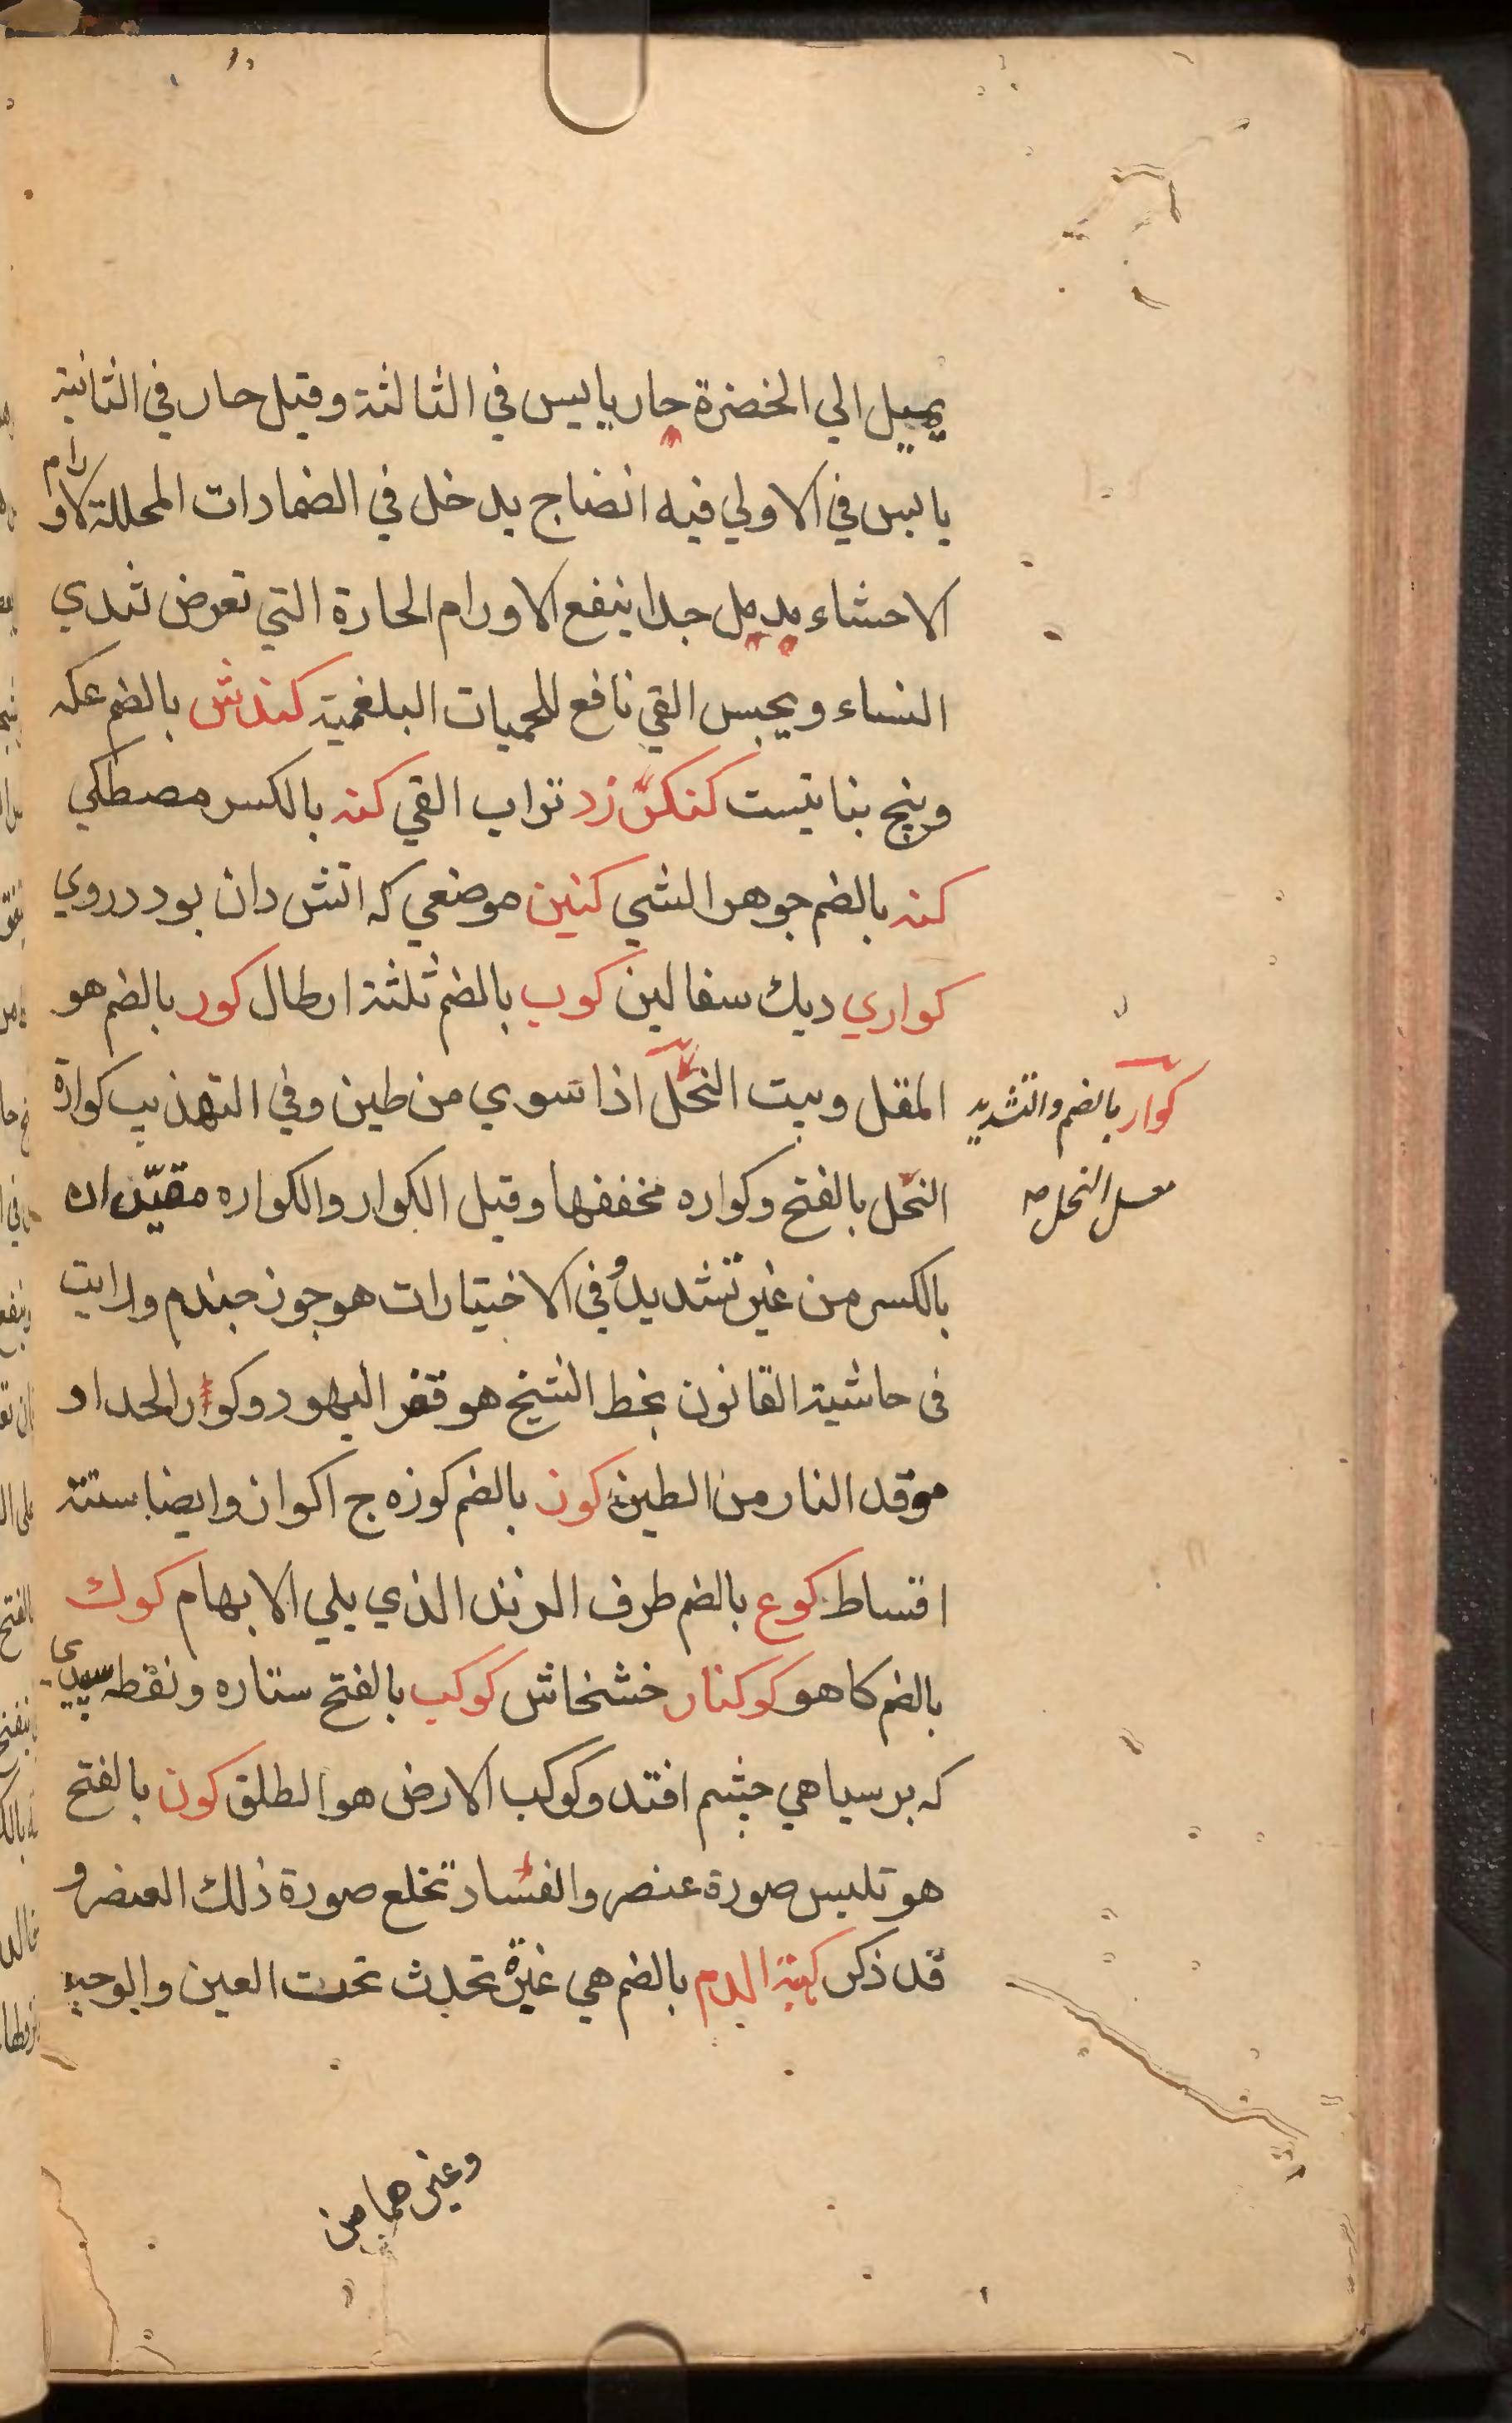 يميل الي الخضرة حار يابس في الثالثة وقيل حار في الثانية
يابس في الاولي فيه انضاج يدخل في الضمادات المحللة لاورام
الاحشاء مدمل جدا ينفع الاورام الحارة التي تعرض ثدي
النساء ويحبس القي نافع للحميات البلغمية كندش بالضم عكه
وبنج بناتيست كنكرزد تراب القي كنه بالكسر مصطكي
كنه بالضم جوهر الشي كنين موضعي كه اتش دان بود درروي
كواري ديك سفالين كوب بالضم ثلثة ارطال كور بالضم هو
المقل وبيت النحل اذا سوي من طين وفي التهذيب كوارة
كوار بالضم والتشديد
معسل النحل صه
النحل بالفتح وكواره مخففها وقيل الكوار والكواره مقيدان
بالكسر من غير تشديد وفي الاختيارات هو جوز جندم ورايت
في حاشية القانون بخط الشيخ هو قفر اليهود وكوار الحداد
موقد النار من الطين كوز بالضم كوزه ج اكواز وايضا ستة
اقساط كوع بالضم طرف الزند الذي يلي الابهام كوك
بالضم كاهو كوكنار خشخاش كوكب بالفتح ستاره ونقطه سپيدي
كه بر سياهي چشم افتد وكوكب الارض هو الطلق كون بالفتح
هو تلبس صورة عنصر والفساد تخلع صورة ذلك العنصر و
قد ذكر كهبة الدم بالضم هي غبرة تحدث تحت العين والوجه
وغيرهما من